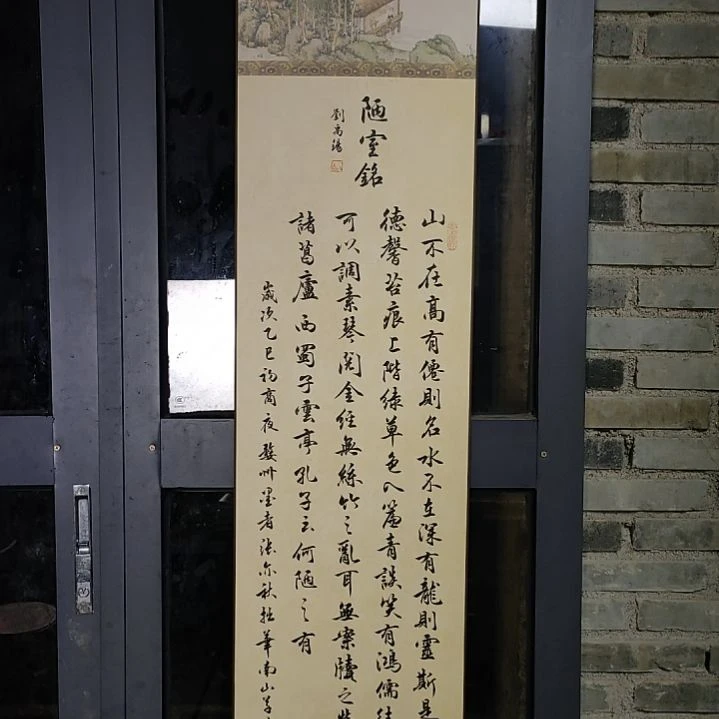 陋室銘
劉禹錫
山不在高有僊則名水不在深有龍則靈斯是
德馨苔痕上階綠草色入簾青談笑有鴻儒往
可以調素琴閱金經無絲竹之亂耳無案牘之
諸葛廬西蜀子雲亭孔子云何陋之有
歲次乙巳初商夜婺州墨者亦秋拙筆南山